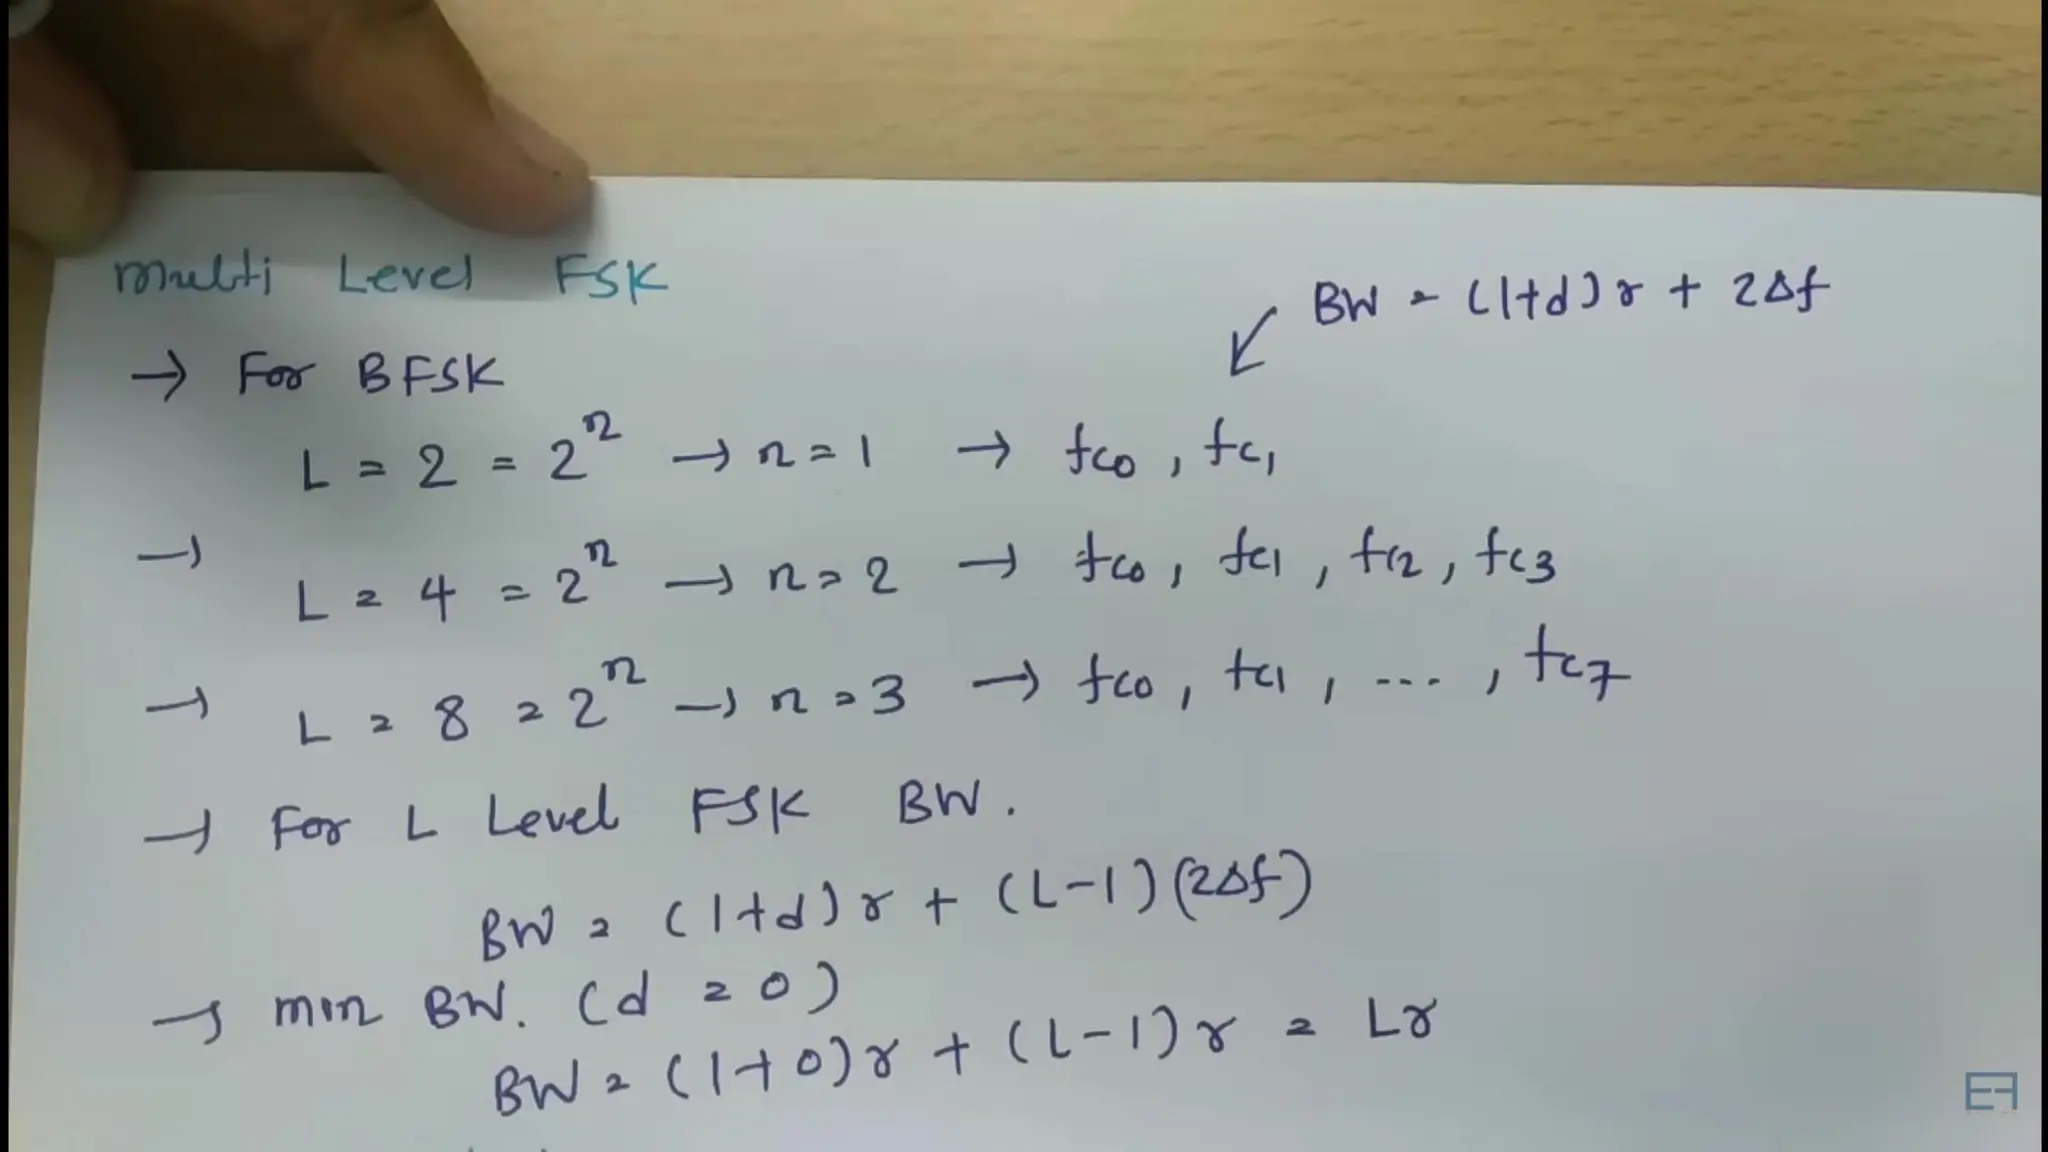 Multi Level FSK
BW = (1+d)r + 2Δf
→ For BFSK
L = 2 = 2^n → n = 1 → fc0, fc1
→ L = 4 = 2^n → n = 2 → fc0, fc1, fc2, fc3
→ L = 8 = 2^n → n = 3 → fc0, fc1, ..., fc7
→ For L Level FSK BW.
BW = (1+d)r + (L-1)(2Δf)
→ min BW. (d = 0)
BW = (1+0)r + (L-1)r = Lr
EF